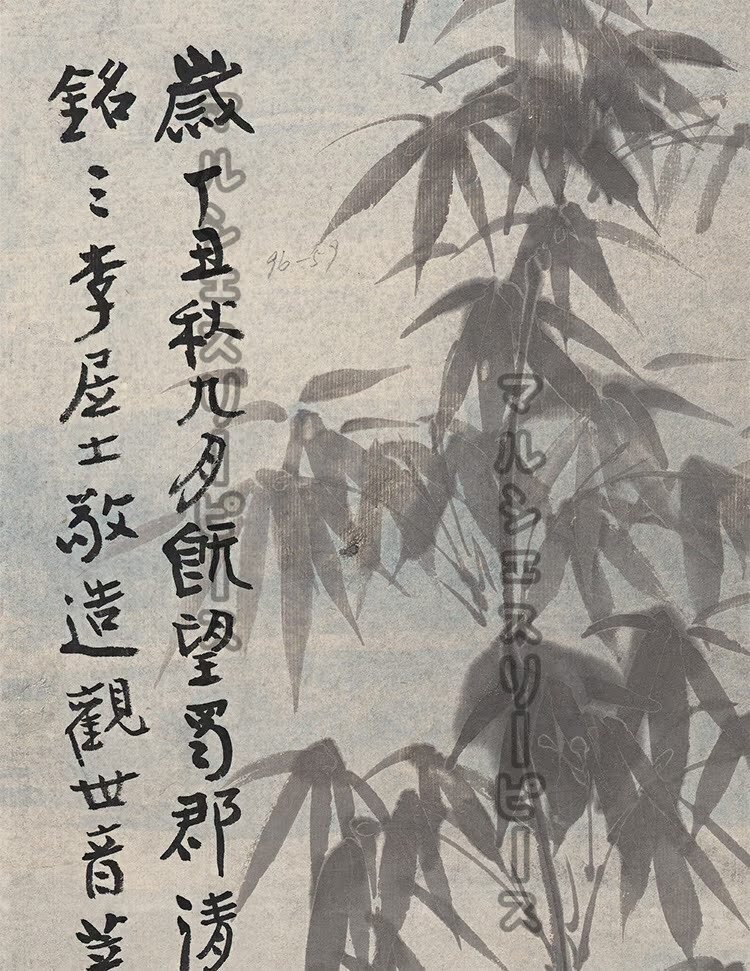 マルシェスリーピース
96-59
マルシェスリーピース
歲丁丑秋月旣望蜀郡清
銘三李居士敬造觀世音菩